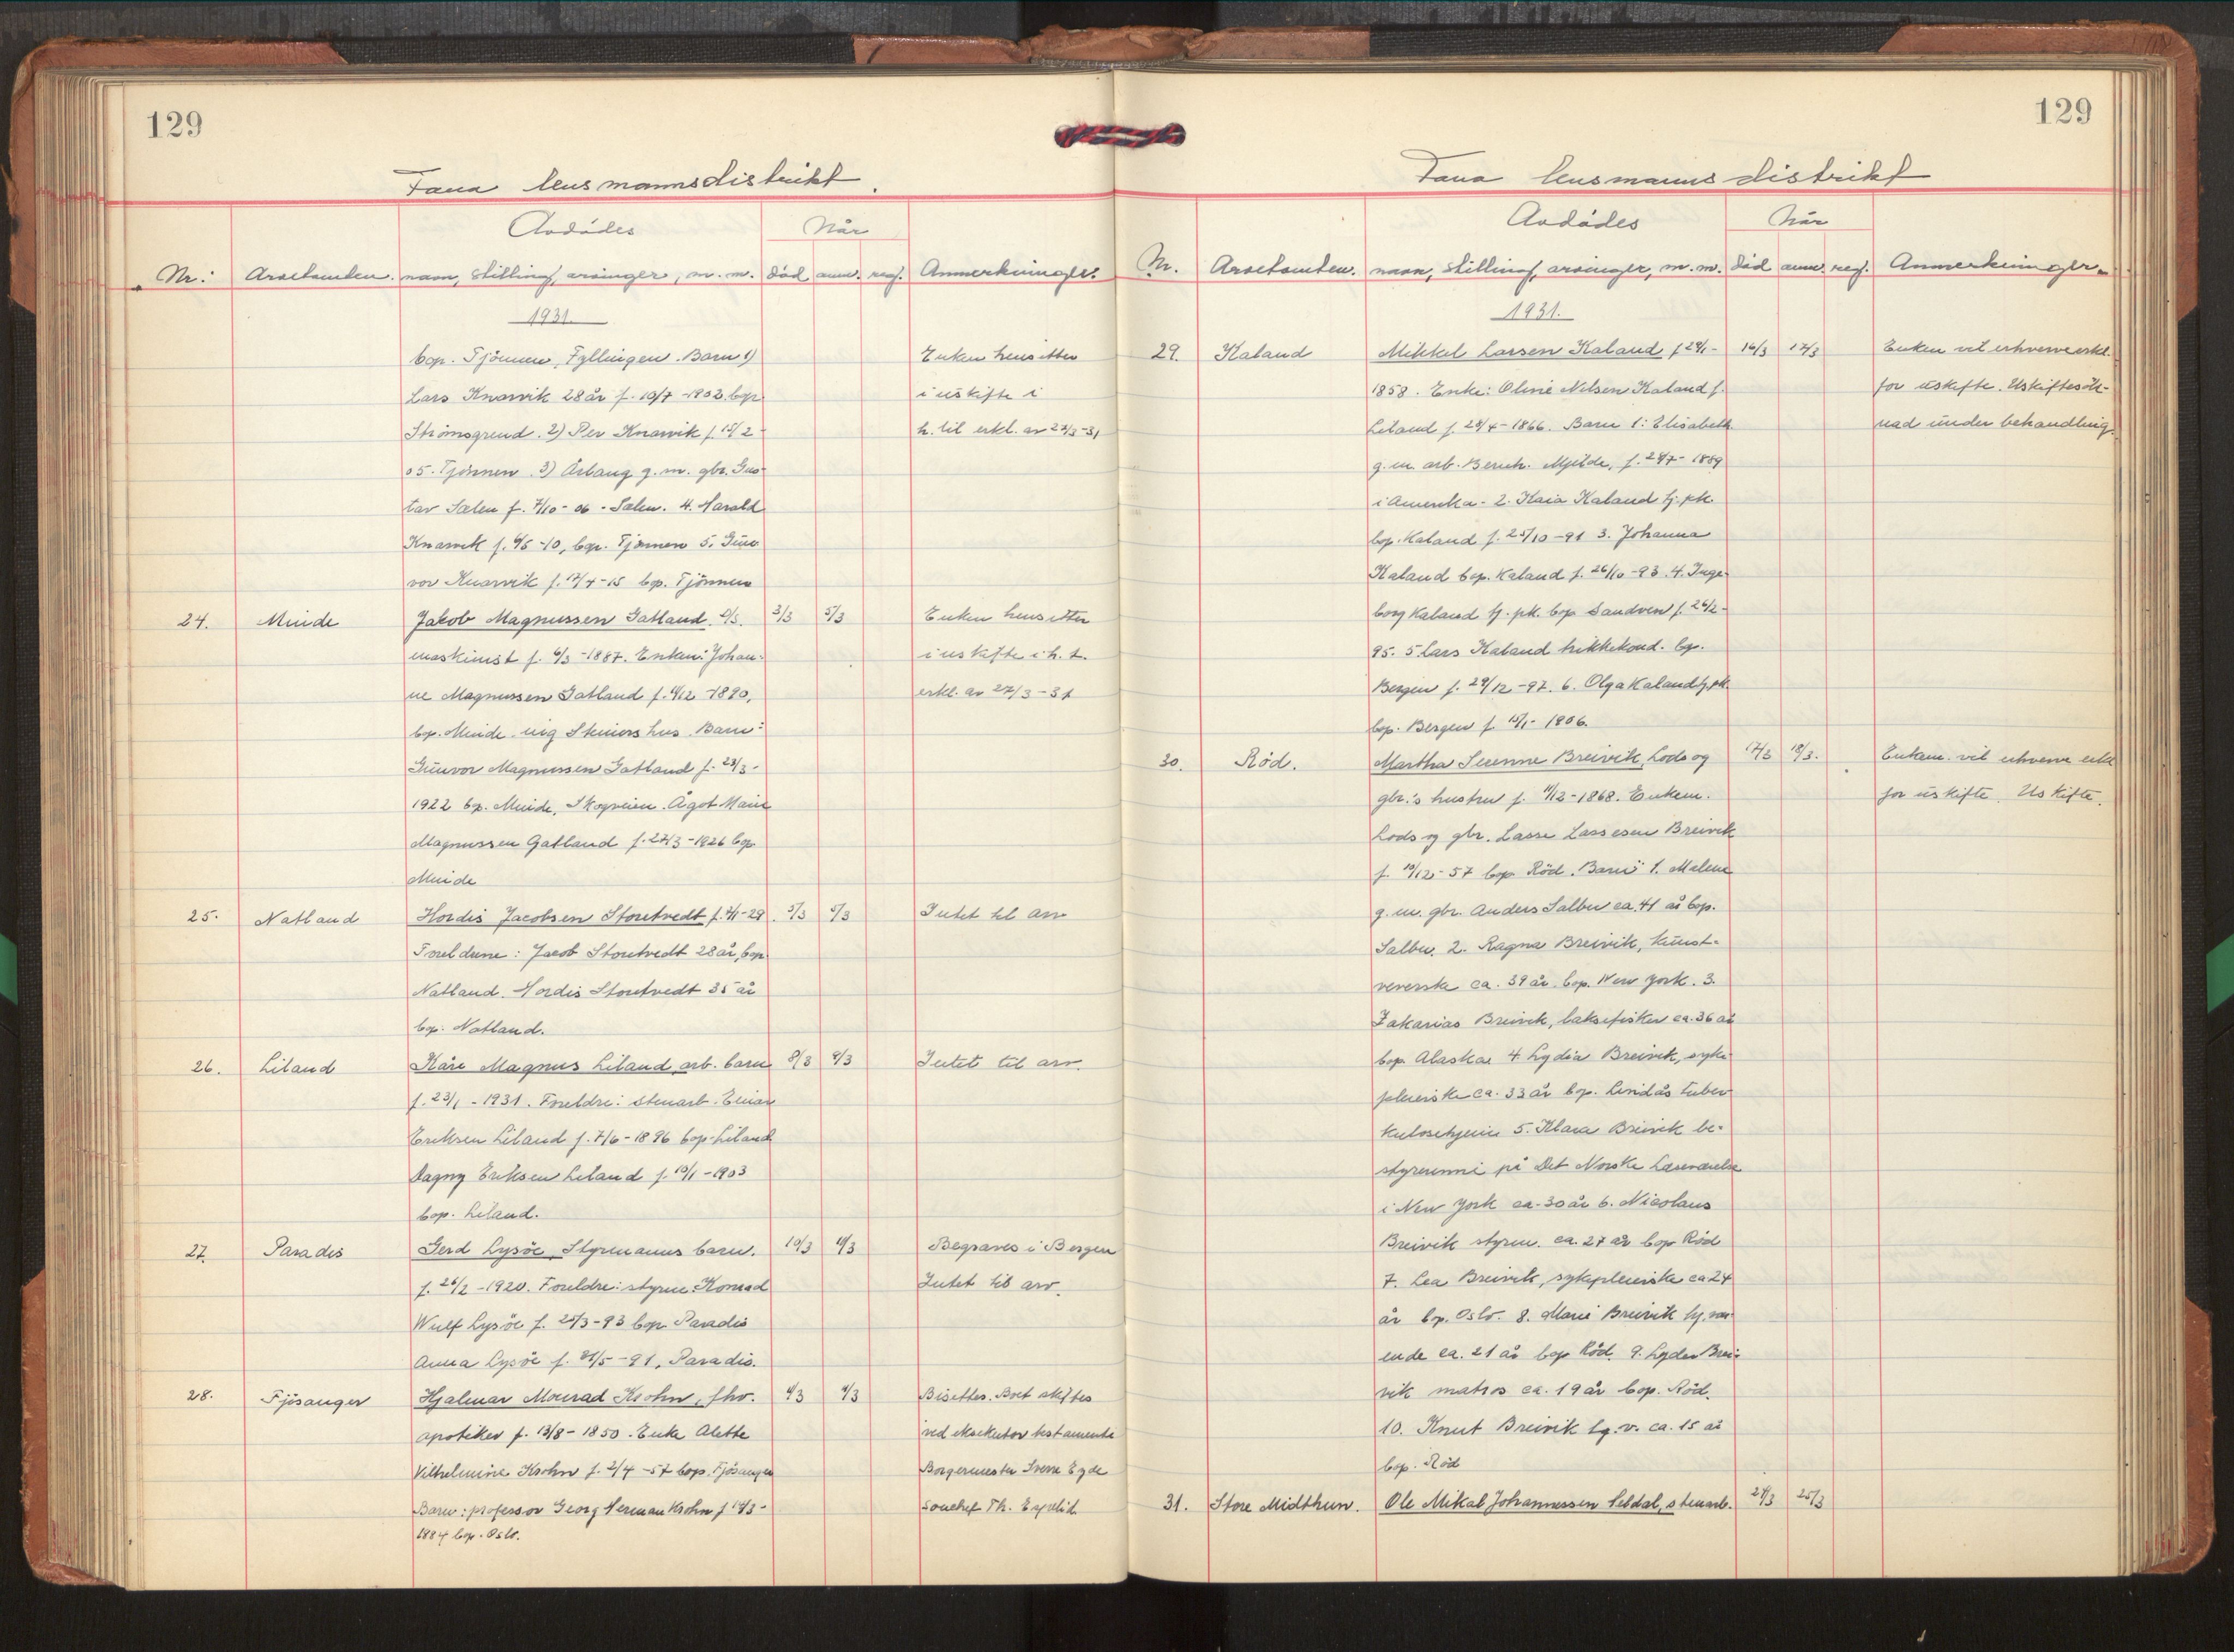 129
Fana lensmannsdistrikt.
Avdødes
Når
Nr. Arvetomten. navn, stilling, arvinger, m. m. død anm. reg. Anmerkninger.
1931.
bop. Tjönnen, Fyllingen. Barn 1) Enken hensitter
Lars Knarvik 28 år f. 10/7 -1902. bop i uskifte i
Strömsgrend. 2) Per Knarvik f. 15/2 h. til erkl. av 23/3-31
05. Tjönnen. 3) Aslaug g. m. gbr. Gus-
tav Salen f. 7/10-06 - Salen. 4. Harald
Knarvik f. 4/5-10, bop. Tjönnen 5. Gun
vor Knarvik f. 17/4-15 bop. Tjönnen
24. Minde Jakob Magnussen Gatland. 3/3 5/3 Enken hensitter
maskinist f. 6/3-1887. Enken: Johan- i uskifte i h. t.
ne Magnussen Gatland f. 4/12 -1890, erkl. av 27/3-31
bop. Minde. Steiners hus. Barn:
Gunvor Magnussen Gatland f. 23/3-
1922 bp. Minde, Skogveien. Ågot Marie
Magnussen Gatland f. 27/3-1926 bop.
Minde
25. Natland Hordis Jacobsen Storetvedt f. 4/1-29. 5/3 5/3 Intet til arv
Foreldrene: Jacob Storetvedt 28 år, bop
Natland. Hordis Storetvedt 35 år
bop. Natland.
26. Liland Kåre Magnus Liland, arb. barn 8/3 9/3 Intet til arv.
f. 23/1 - 1931. Foreldre: stenarb. Einar
Eriksen Liland f. 7/6-1896 bop. Liland
Dagny Eriksen Liland f. 10/1-1903
bop. Liland.
27. Paradis Gerd Lysöe, Styrmanns barn. 10/3 11/3 Begraves i Bergen
f. 26/2 -1920. Foreldre: styrm. Konrad Intet til arv.
Wulf Lysöe f. 25/3-93 bop. Paradis
Anna Lysöe f. 31/5-91, Paradis.
28. Fjösanger Hjalmar Monrad Krohn, fhv. 4/3 9/3 Bisettes. Boet skiftes
apotiker f. 13/8-1850. Enke Alette ved eksekutor testamenti
Vilhelmine Krohn f. 2/4-57 bop. Fjösanger Borgermester Sverre Eyde
Barn: professor Georg Herman Krohn f 14/3- Th.
1884 bop. Oslo.
129
Fana lensmanns distrikt
Avdødes
Når
Nr. Arvetomten. navn, stilling, arvinger, m. m. død anm. reg. Anmerkninger.
1931.
29. Kaland Mikkel Larsen Kaland f 29/1- 16/3 17/3 Enken vil erhverve erkl.
1858. Enke: Oline Nilsen Kaland f. for uskifte. Uskiftesök-
Liland f. 28/4-1866. Barn 1: Elisabeth nad under behandling.
g. m. arb. Bernh. Mjelde, f. 29/7-1889
i Amerika. 2. Kaia Kaland tj. pk.
bop. Kaland f. 25/10-91 3. Johanna
Kaland bop. Kaland f. 26/10-93. 4. Inge-
borg Kaland tj. pk. bop Sandven f. 26/2-
95. 5. Lars Kaland trikkekond. bp.
Bergen f. 29/12-97. 6. Olga Kaland tj. pk.
bop. Bergen f 15/1- 1906.
30. Röd. Martha Breivik, Lods og 17/3 18/3. Enkem. vil erhverve erkl
gbr.'s hustru f. 11/12-1868. Enkem. for uskifte. Uskifte.
Lods og gbr. Lasse Lassesen Breivik
f. 19/12-57 bop Röd. Barn 1. Malene
g. m. gbr. Anders Salbu ca. 41 år bop.
Salbu. 2. Ragna Breivik, kunst-
veverske ca. 39 år. bop. New York. 3.
Zakarias Breivik, laksefisker ca. 36 år
bop. Alaska 4. Lydia Breivik, syke
pleierske ca. 33 år bop. Lindås tuber
kulosehjem 5. Klara Breivik be-
styrerinne på Det Norske Læseværelse
i New York ca. 30 år 6. Nicolaus
Breivik styrm. ca. 27 år bop Röd
7. Lea Breivik, sykepleierske ca 24
år bp. Oslo. 8. Marie Breivik hj. vær-
ende ca. 21 år bop Röd. 9. Lyder Brei-
vik matros ca. 19 år bop. Röd.
10. Knut Breivik hj. v. ca. 15 år
bop. Röd
31. Store Midthun. Ole Mikal Johannessen Seldal, stenarb. 24/3 25/3